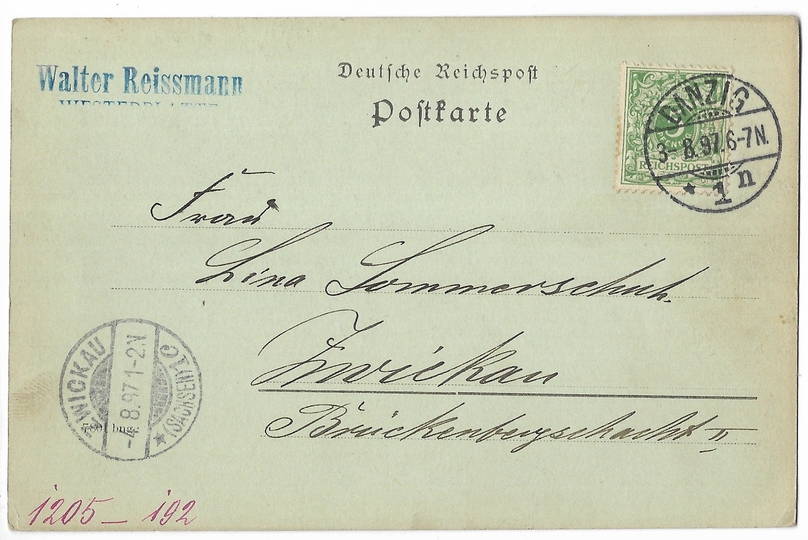 Walter Reissmann
WESTERPLATTE
Deutsche Reichspost
Postkarte
REICHSPOST
DANZIG
3-8.97.6-7N.
* 1 n
Frau
Lina Sommerschuh.
Zwickau
Brückenbergschacht II
ZWICKAU
-4.8.97.1-2N
*(SACHSEN)1 c
1205 - 192